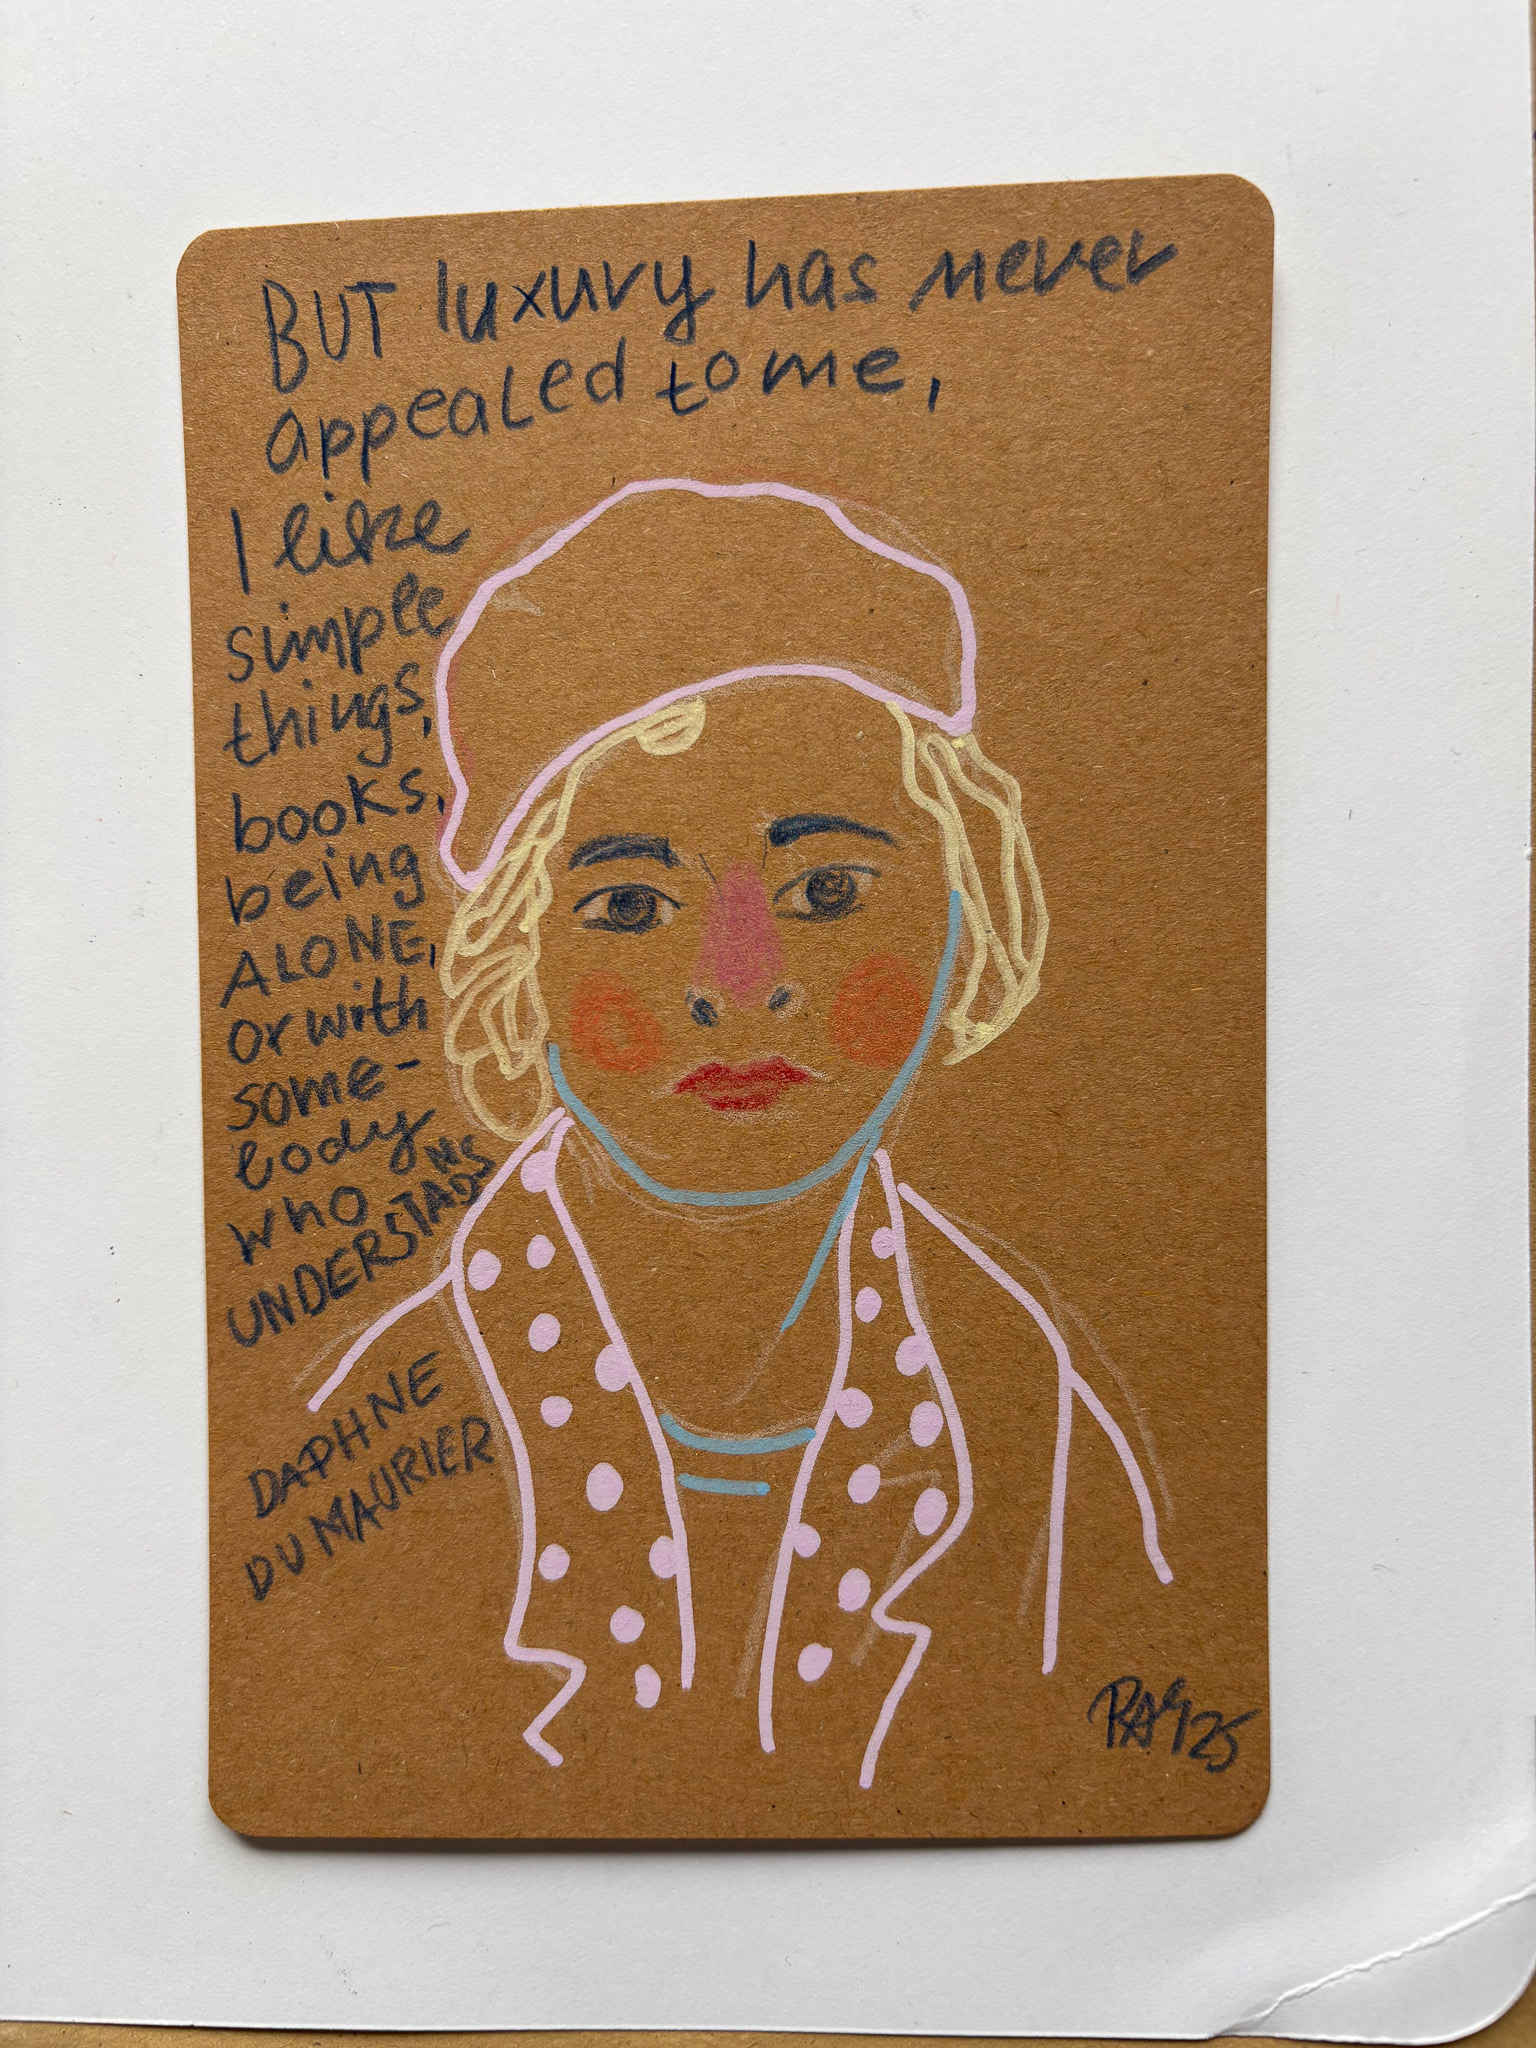 BUT luxury has never
appealed to me,
I like
simple
things,
books,
being
ALONE,
or with
some-
body
who
UNDERSTANDS
DAPHNE
DU MAURIER